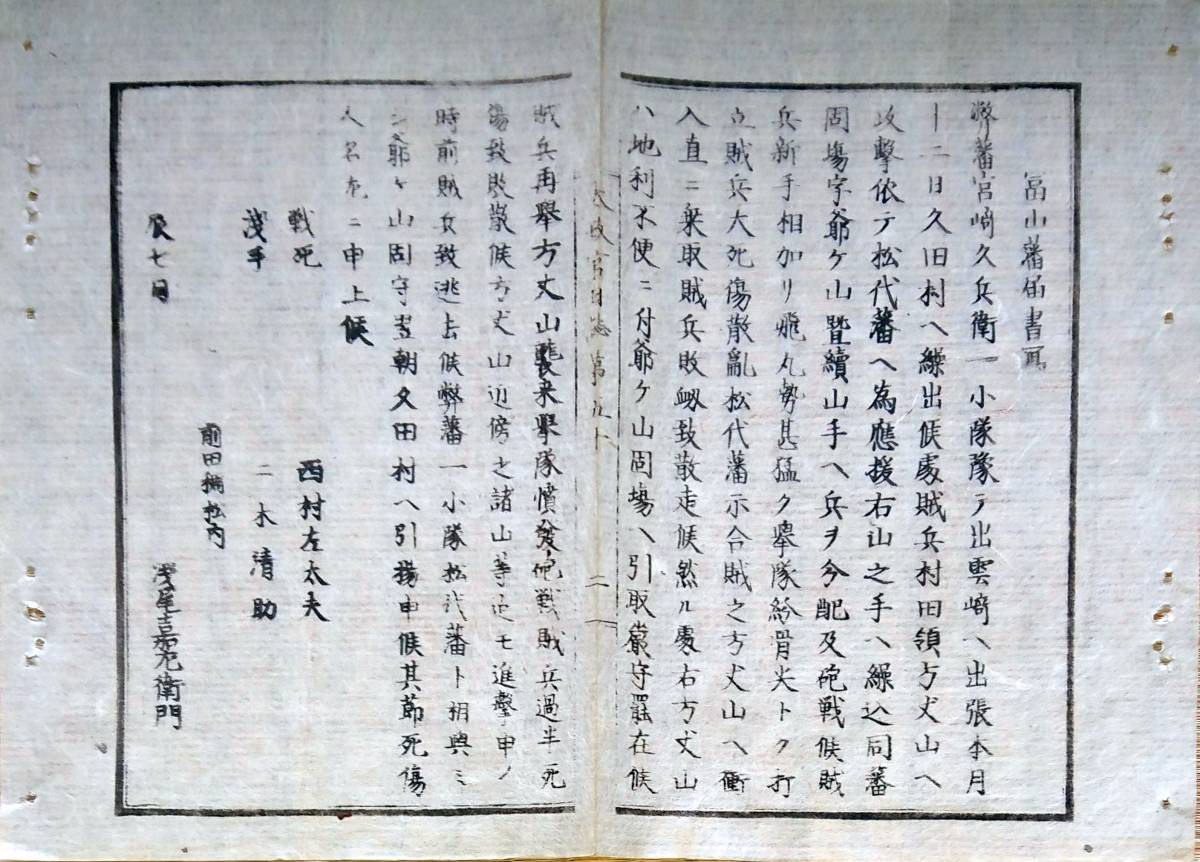 富山藩届書写
弊藩宮﨑久兵衛一小隊豫テ出雲﨑ヘ出張本月
十二日久田村ヘ繰出候處賊兵村田領方丈山ヘ
攻撃依テ松代藩ヘ為應援右山之手ヘ繰込同藩
固場字爺ケ山曁續山手ヘ兵ヲ分配及砲戦候賊
兵新手相加リ飛丸勢甚猛ク擧隊紛骨尖トク打
立賊兵大死傷散亂松代藩示合賊之方丈山ヘ衝
入直ニ乗取賊兵敗衂致散走候然ル處右方丈山
ハ地利不便ニ付爺ケ山固場ヘ引取嚴守罷在候
太政官日誌第五十
二
賊兵再擧方丈山襲来擧隊憤發砲戦賊兵過半死
傷致敗散候方丈山近傍之諸山等迄モ進撃申ノ
時前賊兵致逃去候弊藩一小隊松代藩ト相與ミ
シ爺ケ山固守翌朝久田村ヘ引揚申候其節死傷
人名左ニ申上候
戦死 西村左太夫
淺手 二木清助
前田稠松内
辰七月 淺尾嘉右衛門